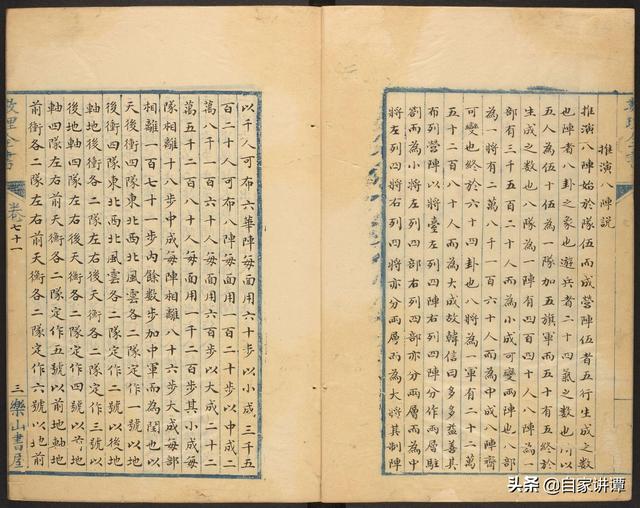 推演八陣説
推演八陣始於隊伍而成營陣伍者五行生成之數
也陣者八卦之象也遊兵者二十四氣之數也所以
五人為伍十伍為一隊加五旗軍而五十有五終於
生成之數也八隊為一陣有四百四十人八陣為一
部有三千五百二十人而為小成可變兩陣也八部
為一將有二萬八千一百六十人而為中成八陣齊
可變也終於六十四卦也八將為一軍有二十二萬
五十二百八十人而為大成故韓信曰多多益善其
布列營陣以將臺左列四陣右列四陣分作兩層駐
劄而為小將左列四部右列四部亦分兩層而為中
將左列四將右列四將亦分兩層而為大將其制陣
以千人可布六華陣每面用六十步以小成三千五
百二十人可布八陣每面用一百二十步以中成二
萬八千一百六十人每面用六百步以大成二十二
萬五千二百八十人每面用一千二百步其小成每
隊相離十八步中成每陣相離八十六步大成每部
相離一百七十一步內餘數步加中軍而為閏也以
天後衝四隊東北西北風雲各二隊定作一號以地
後衝四隊東北西北風雲各二隊定作二號以後地
軸地後衝各二隊左右後天衡各二隊定作三號以
後地軸四隊左右後天衡各二隊定作四號以前地
軸四隊左右前天衡各二隊定作五號以前地軸地
前衝各二隊左右前天衡各二隊定作六號以地前
數理全書 卷七十一 三樂山書屋
头条 @自家讲谭